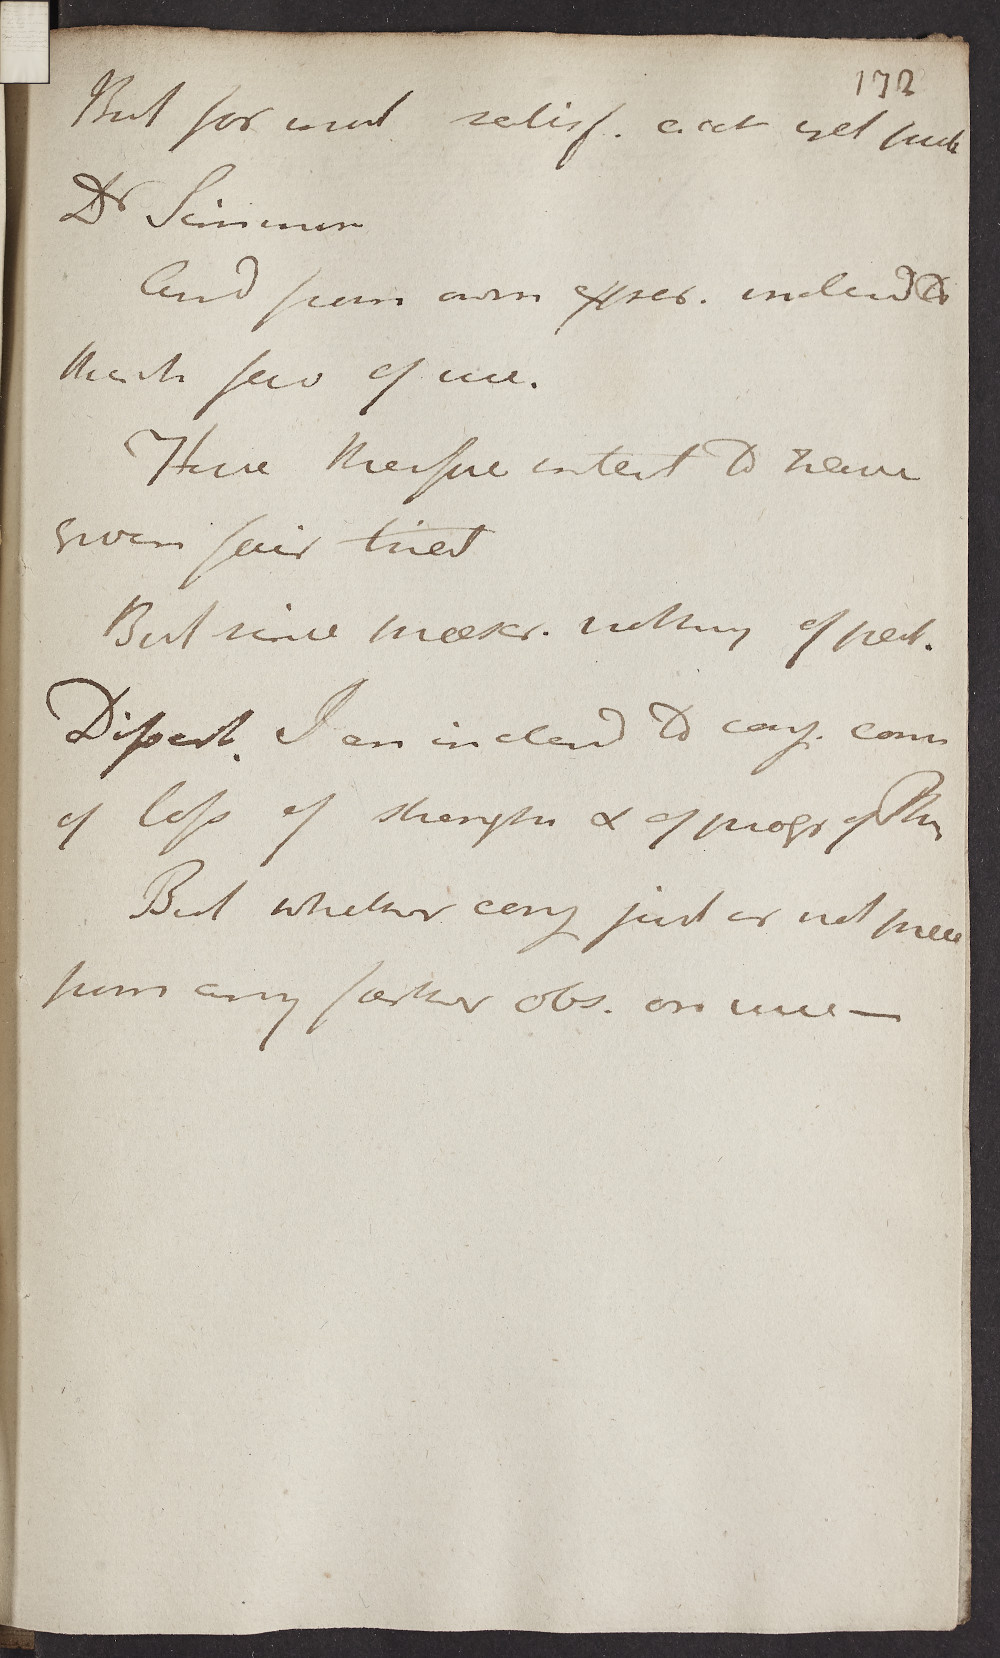 172
But for most satisf. acct yet publ
Dr Simmon
And from own exper. inclin'd to
think fav of use.
Have therefore intent to have
given fair trial
But since prescr. nothing of pect.
Dispart. I am inclin'd to conj. conn
of loss of strength & of progr of Phy
But whether conj just or not
from any farther obs. on use —